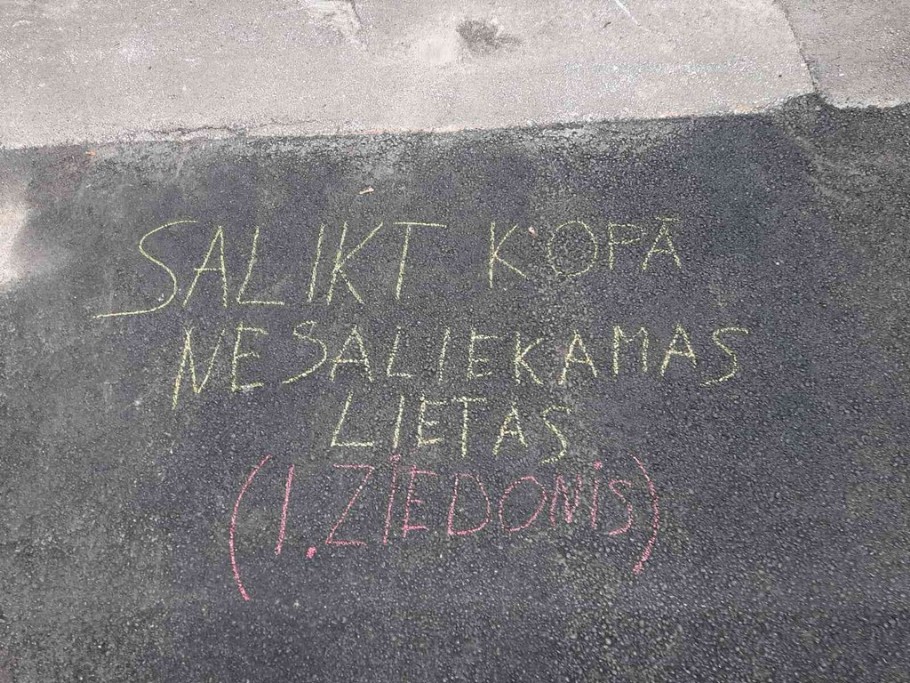 SALIKT KOPĀ
NESALIEKAMAS
LIETAS
(I. ZIEDONIS)